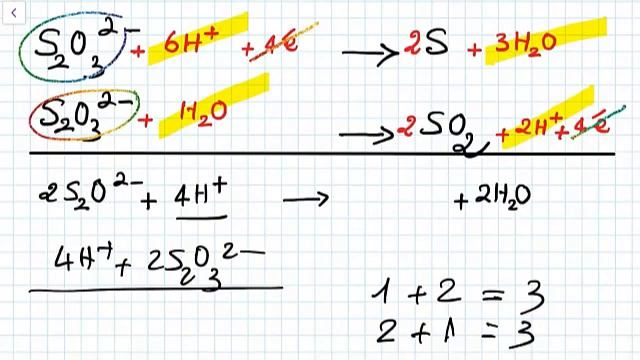 S₂O₃²⁻ + 6H⁺ + 4ē ⟶ 2S + 3H₂O
S₂O₃²⁻ + H₂O ⟶ 2SO₂ + 2H⁺ + 4ē
2S₂O²⁻ + 4H⁺ ⟶ + 2H₂O
4H⁺ + 2S₂O₃²⁻
1 + 2 = 3
2 + 1 = 3